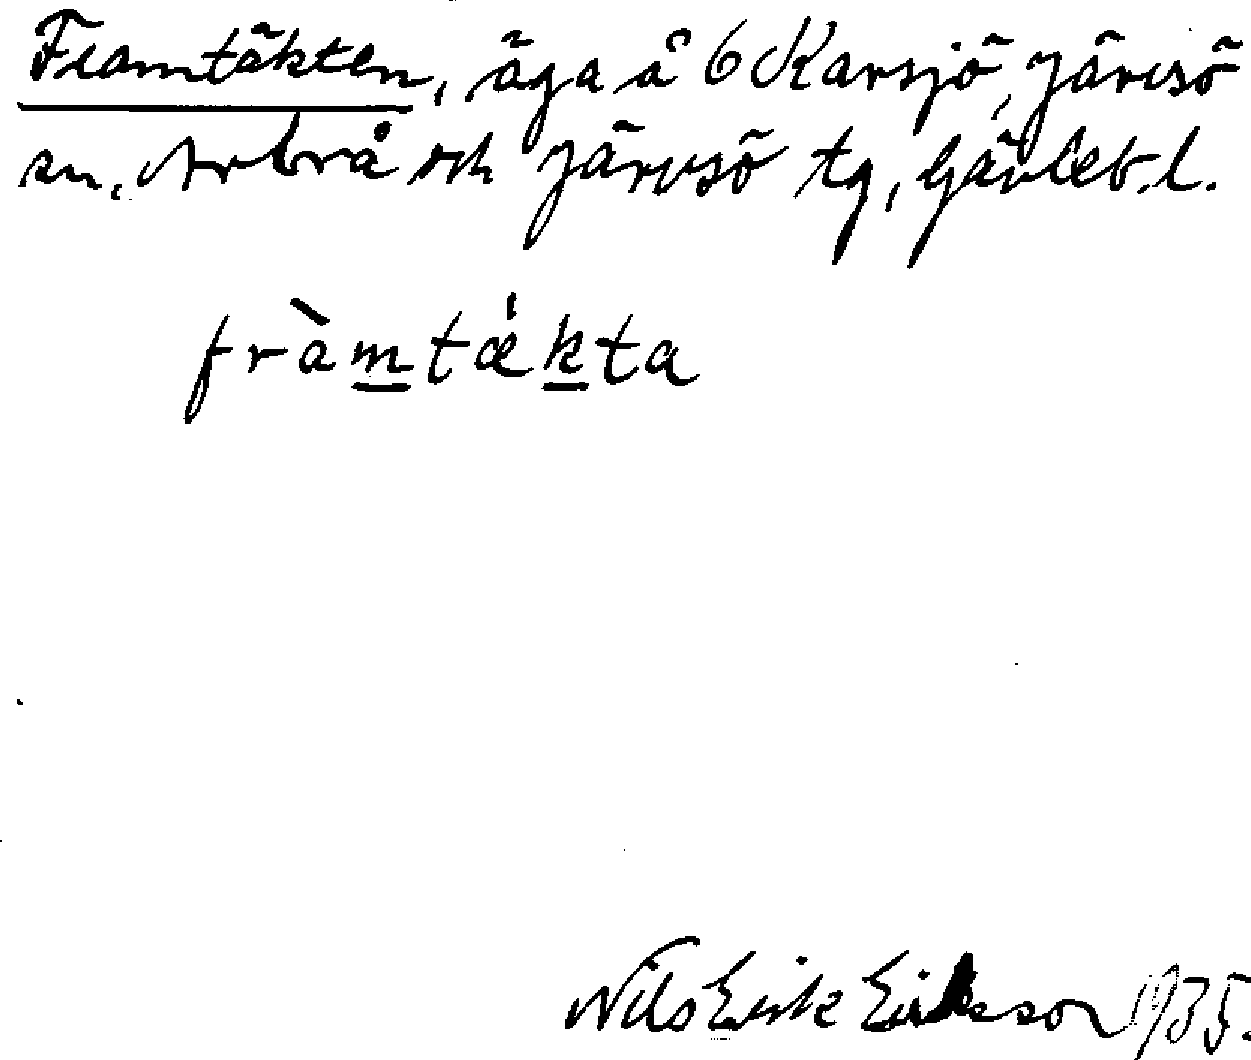 Framtäkten, äga å 6 Karsjö, Järvsö
sn, Arbrå och Järvsö tg, Gävleb.l.
fràmtǽkta
Nils Erik Eriksson 1935.